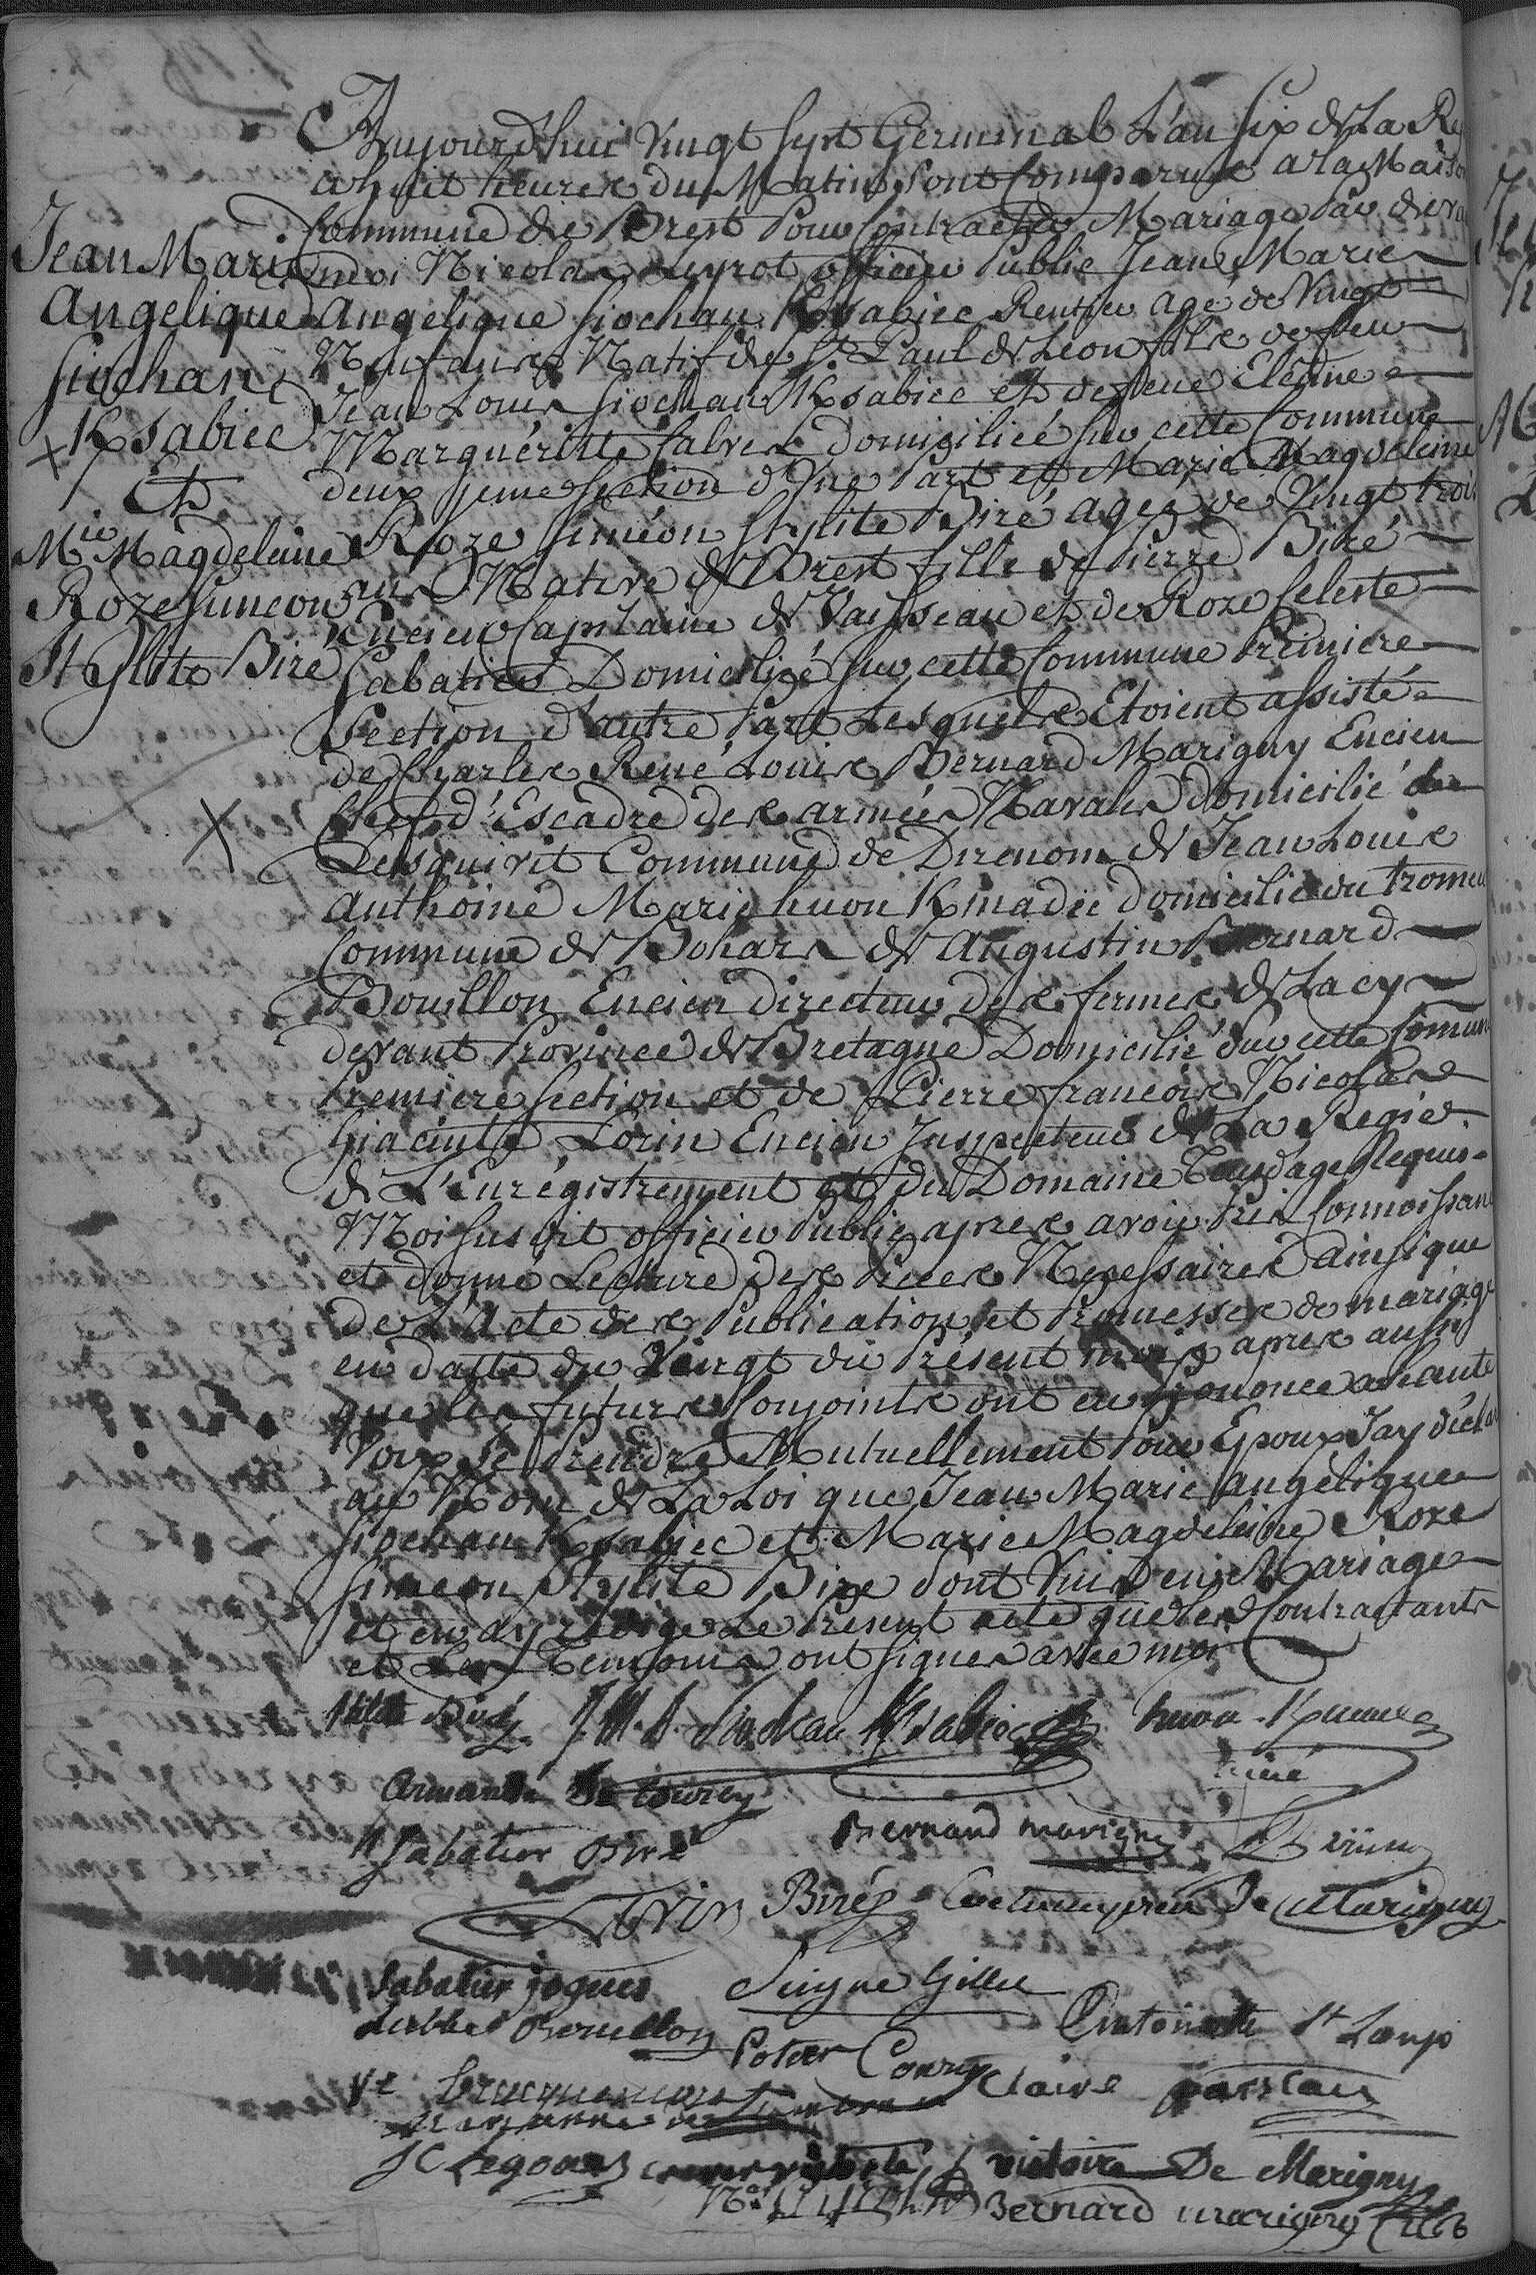 Aujourd'huit Vingt Sept Germinal L'an Six de La Re
a huit heures du Matin Sont Comparus a la Maison
Commune de Brest Pour Contracter Mariage Par deva
moi Nicolas Leyrot officier Public Jean Marie
Angelique Siochan Ksabiec Rentier agé de Vingt
Neuf ans Natif de St Paul de Léon fils de feu
Jean Louis Siochan Ksabiec et de feue Elêone
Marguéritte Calvez domicilié sur cette Commune
deuxieme Section d'Une Part et Marie Magdeleine
Roze Siméon Stylite Biré agée de Vingt trois
ans Native de Brest fille de Pierre Biré
Encien Capitaine de Vaisseau et de Roze Celeste
Sabatier Domiciliée sur cette Commune Premiere
Section d'autre Part Lesquels Etoient assisté
de Charles René Louis Bernard Marigny Encien
Chef d'Escadre des armées Navales domicilié de
Lesquivit Commune de Direnom de Jean Louis
Anthoine Marie huon Kmadec domicilié du Tromeu
Commune de Bohars de Augustin Bernard
Bouillon Encien directeur des fermes de La cy
devant Province de Bretagne Domicilié sur cette Comune
Premiere Section et de Pierre francois Nicolas
hiacinthe Lorin Encien Inspecteur de La Regie
de L'Enrégistrement et du Domaine Tous d'age Requis
Moi Susdit officier Public apres avoir Pris Connoissan
et donné Lecture des Pieces Necessaires ainsi que
de L'Acte des Publication et Promesses de mariage
en datte du Vingt du Présent mois apres aussi
que les futurs Conjoints ont eu prononcé a haute
Voix Se Prendre Mutuellement Pour Epoux J'ay décla
au Nom de La Loi que Jean Marie Angelique
Siochan Ksabiec et Marie Magdeleine Roze
Simeon Stylite Biré Sont Unis en Mariage
et en ay redigé Le Présent acte que les Contractants
et Les Temoins ont Signer avec moi
Jean Marie
Angelique
Siochan
Ksabiec
Et
Mie Magdeleine
Roze Simeon
Stylite Biré
Stilite Biré J. M. A. Siochan Ksabiec huon Kmadec
ainé
Armande de Courcy
Sabatier Biré Bernard marigny
Lorin Biré De Marigny
Sabatier jogues Seigne Gillet
Bouillon Antoinette St Loup
Potier Courcy Claire
Ve
J C Legoüas victoire De Marigny
Bernard marigny fils